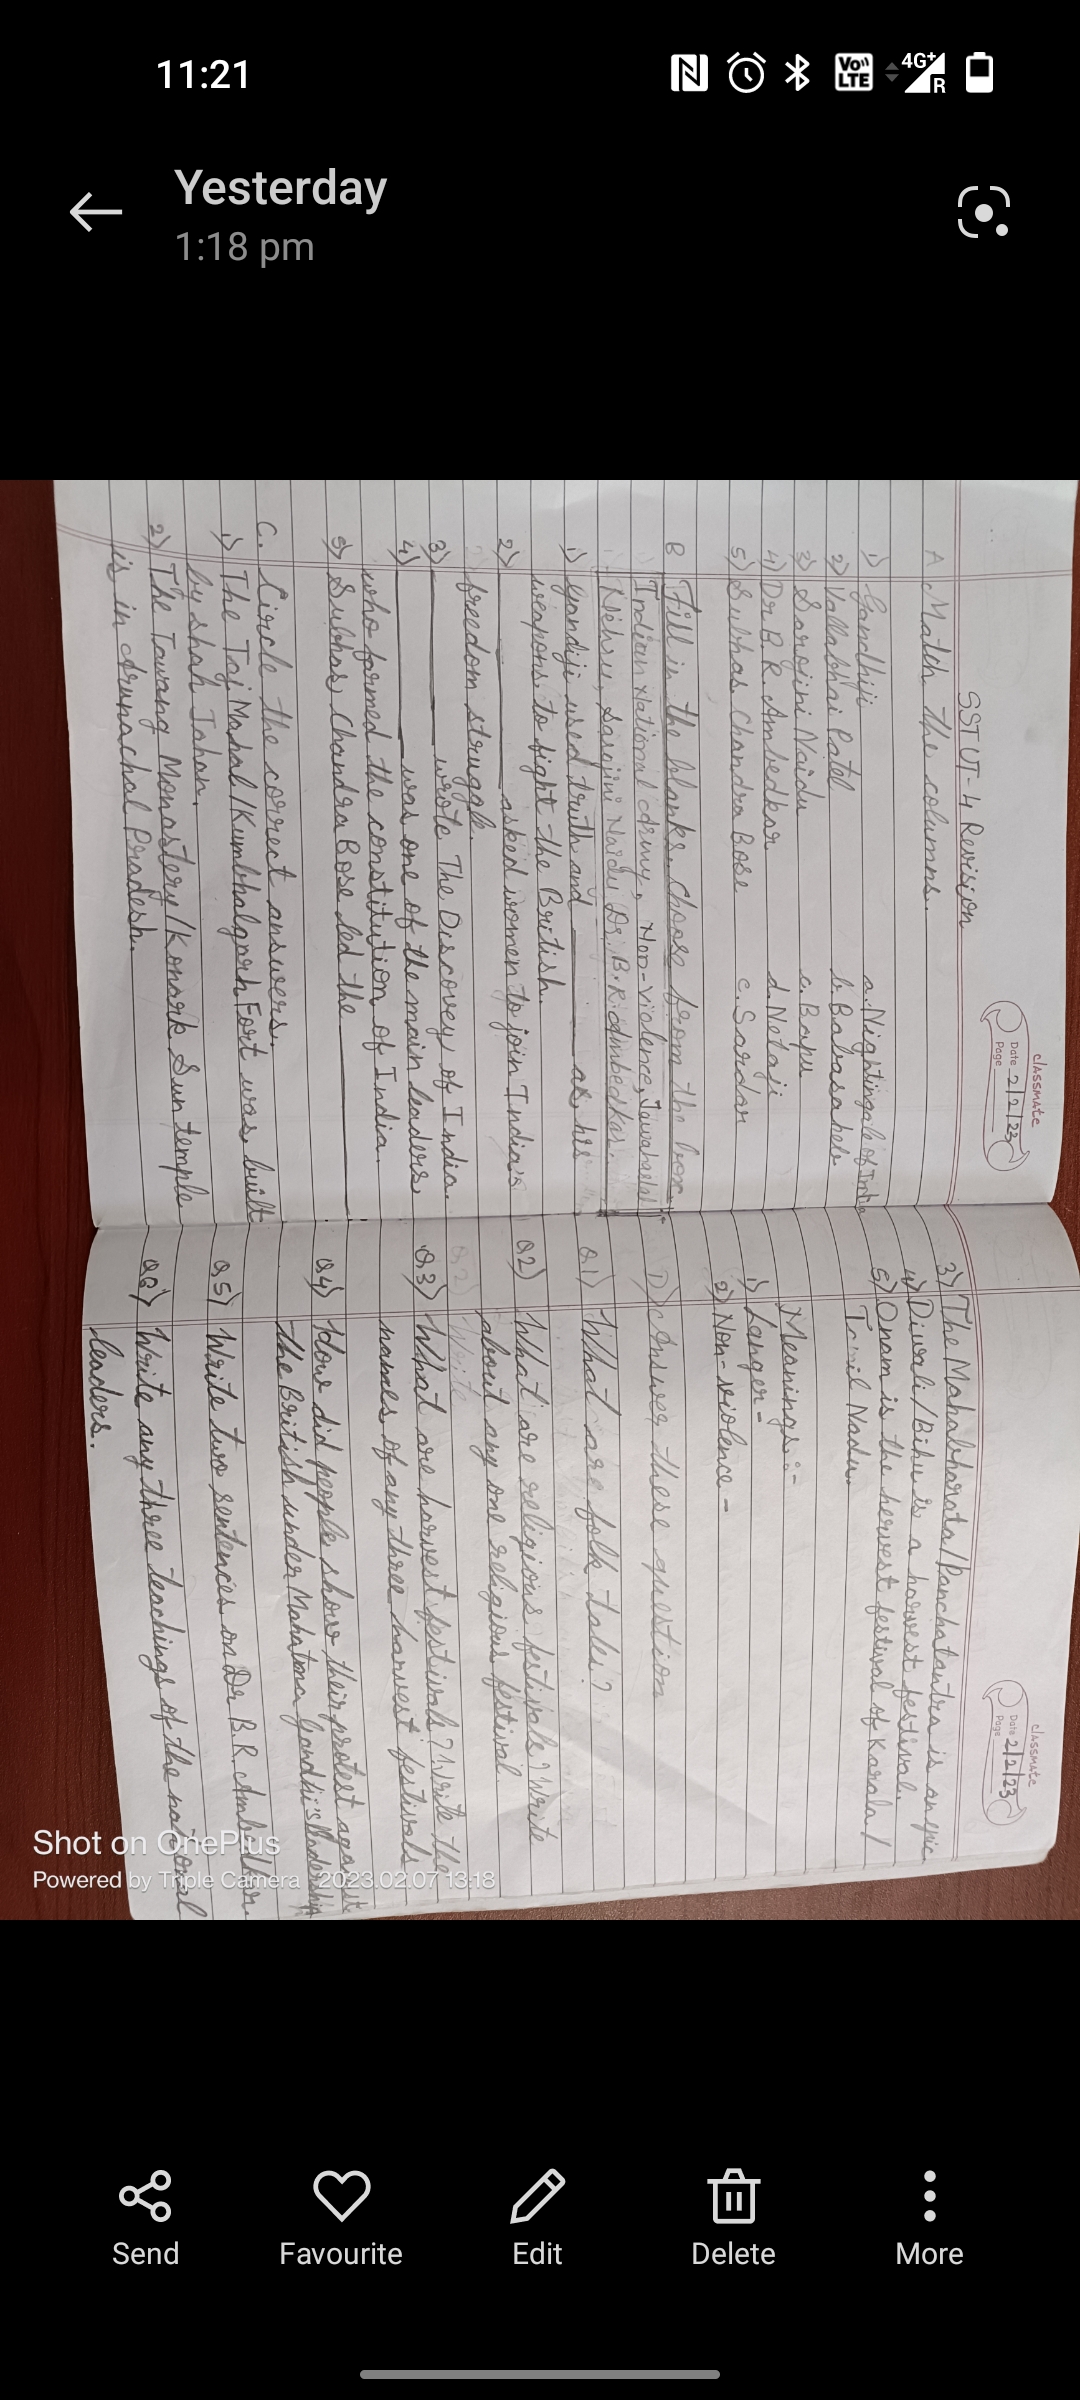 11:21
Vo LTE 4G+ R
Yesterday
1:18 pm
classmate
Date 2/2/23
Page
SST UT-4 Revision
A Match the columns.
1) Gandhiji a. Nightingale of India
2) Vallabhai Patel b. Babasaheb
3) Sarojini Naidu c. Bapu
4) Dr. B. R. Ambedkar d. Netaji
5) Subhas Chandra Bose c. Sardar
B Fill in the blanks. Choose from the box.
Indian National Army, Non-violence, Jawaharlal
Nehru, Sarojini Naidu Dr. B. R. Ambedkar.
1) Gandiji used truth and ____ as his
weapons to fight the British.
2) ____ asked women to join India's
freedom struggle.
3) ____ wrote The Discovey of India.
4) ____ was one of the main leaders
who formed the constitution of India.
5) Subhas Chandra Bose led the ____
C. Circle the correct answers.
1) The Taj Mahal/Kumbhalgarh Fort was built
by shah Jahan.
2) The Tawang Monastery/Konark Sun temple
is in Arunachal Pradesh.
classmate
Date 2/2/23
Page
3) The Mahabharata/Panchatantra is an epic
4) Diwali/Bihu is a harvest festival.
5) Onam is the hervest festival of Karala/
Tamil Nadu.
Meanings:-
1) Langer -
2) Non-violence -
D) Answer these question
Q.1) What are folk tales?
Q2) What are religious festivals? Write
about any one religious festival.
Q2) Write
Q.3) What are harvest festivals? Write the
names of any three harvest festivals
Q.4) How did people show their protest against
the British under Mahatma Gandhi's leadership
Q.5) Write two sentences on Dr B. R. Ambedkar.
Q6) Write any three teachings of the national
leaders.
Shot on OnePlus
Powered by Triple Camera 2023.02.07 13:18
Send
Favourite
Edit
Delete
More